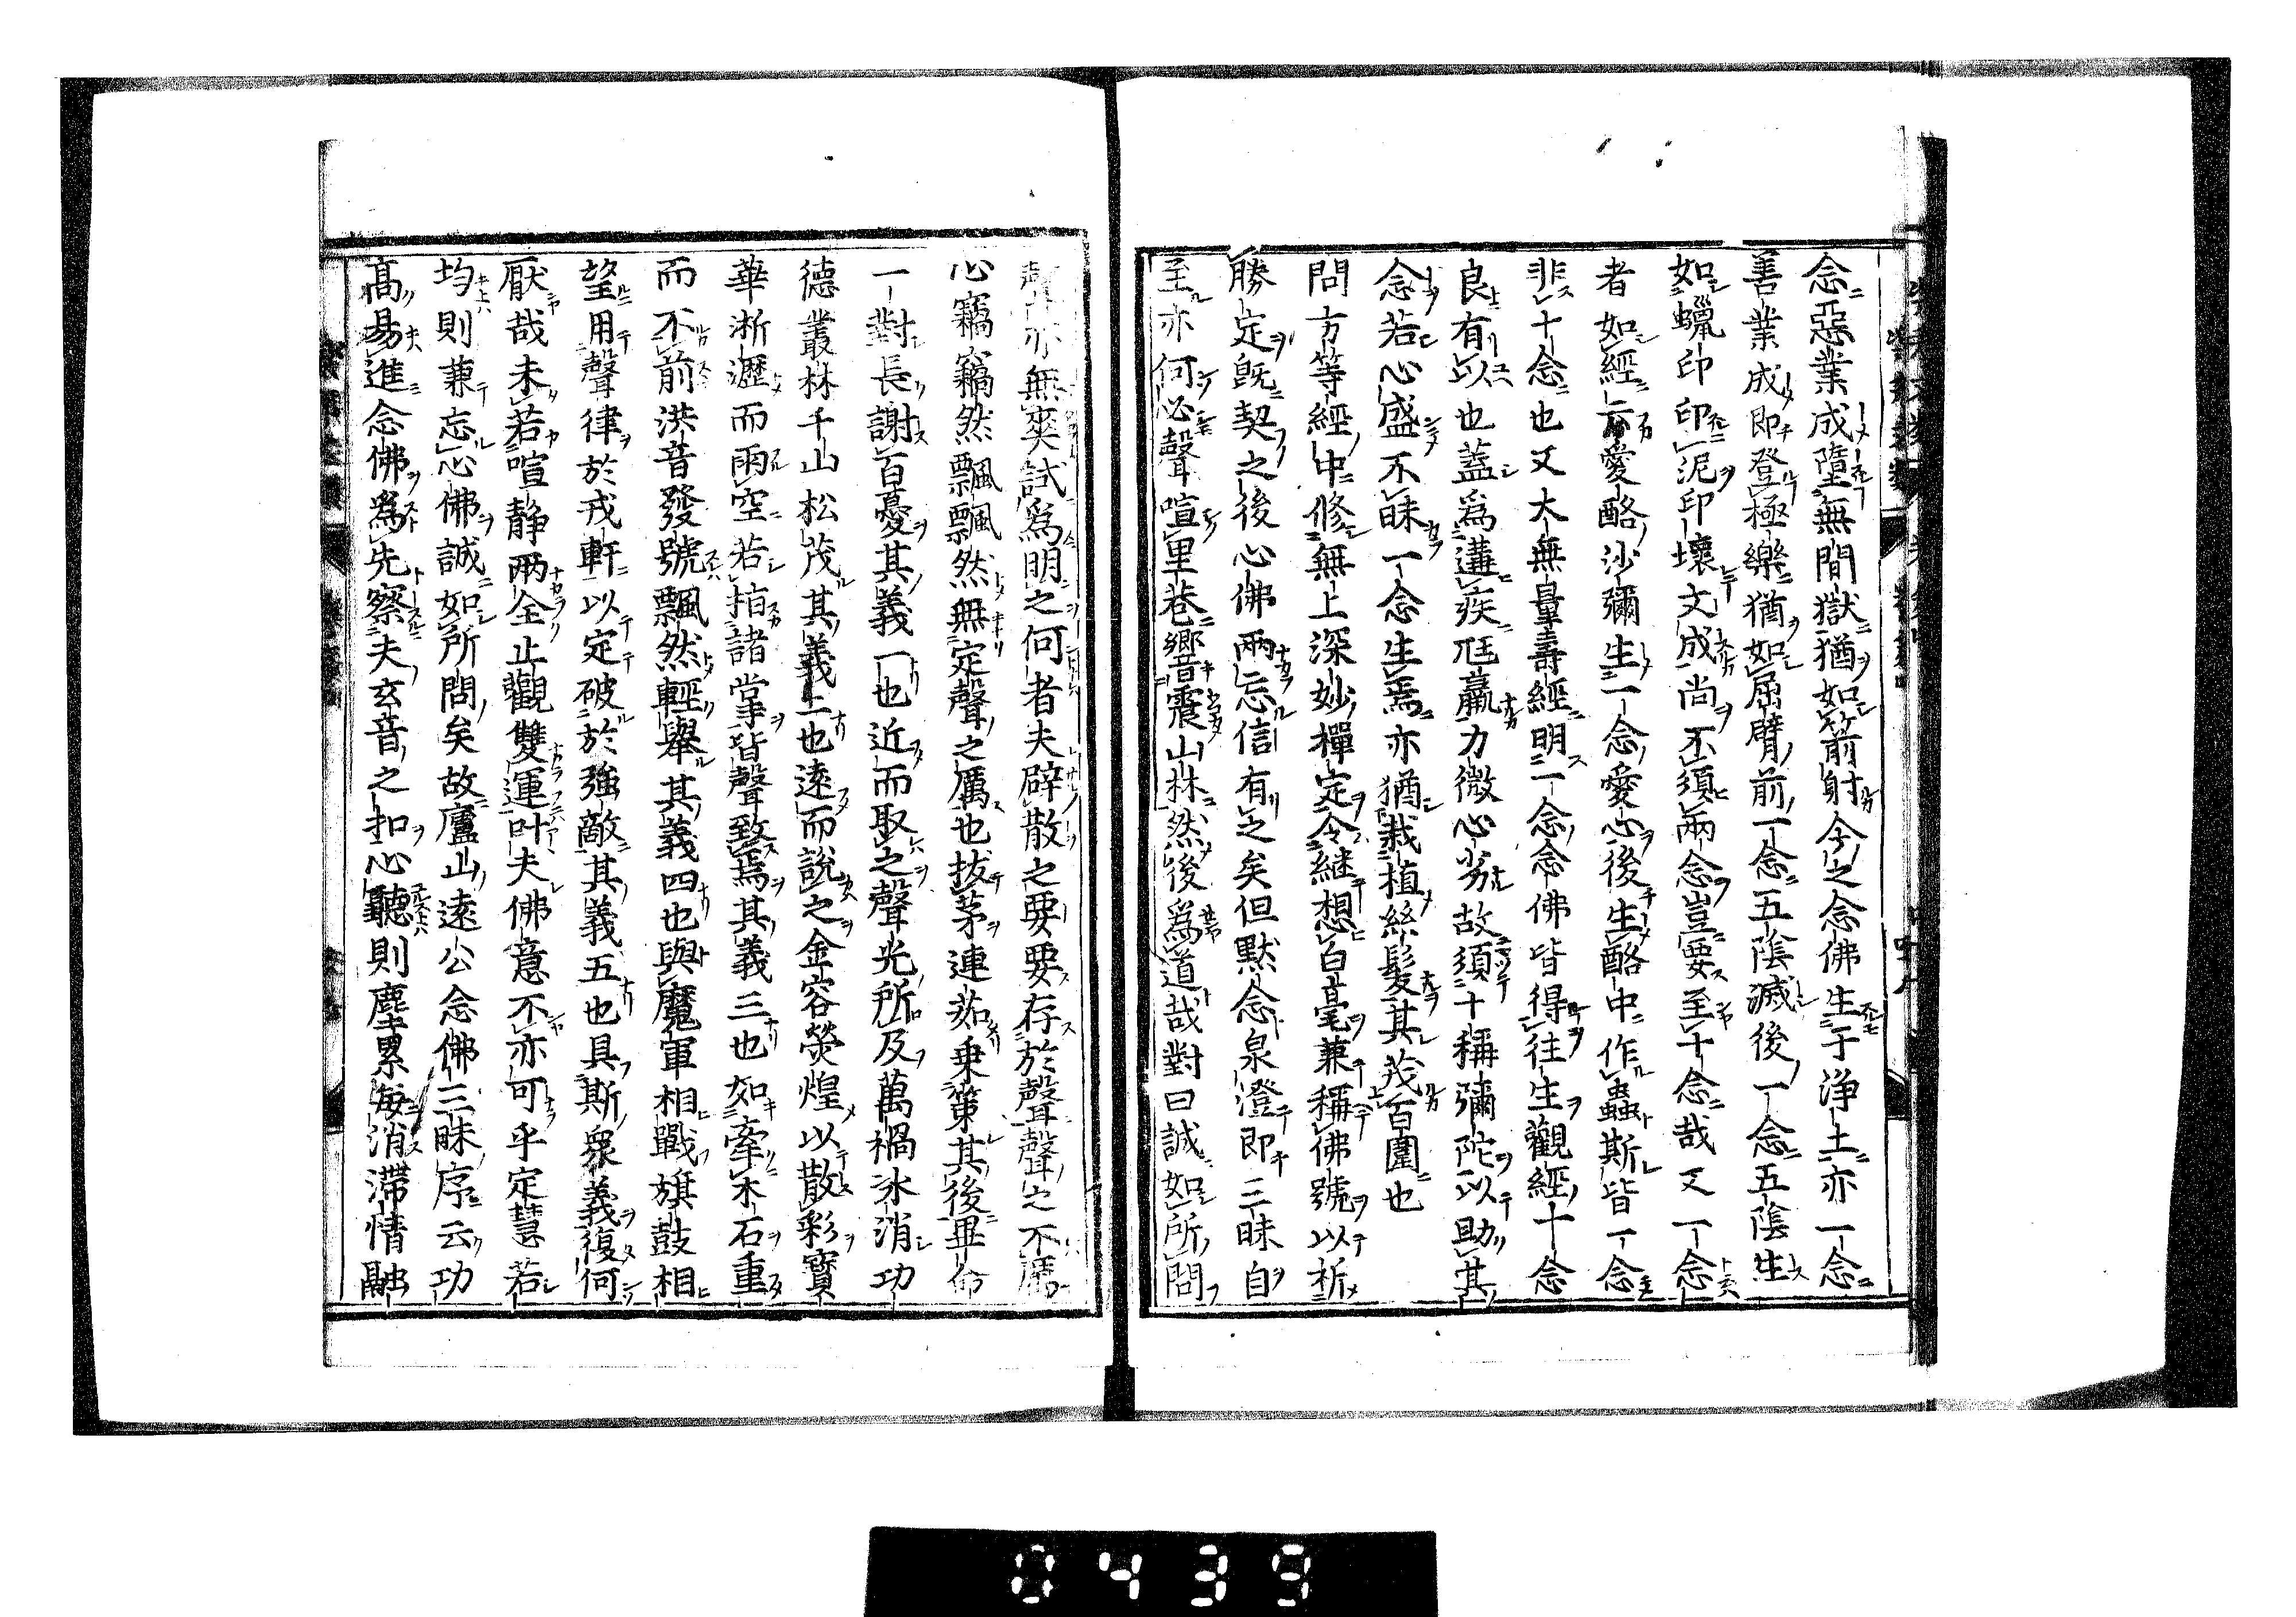 念惡業成墮無間獄猶如箭射今之念佛生于淨土亦一念
善業成即登極樂猶如屈臂前一念五陰滅後一念五陰生
如蠟印印泥印壞文成尚不須兩念豈要至十念哉又一念
者如經云愛酪沙彌生一念愛心後生酪中作蟲斯皆一念
非十念也又大無量壽經明一念念佛皆得往生觀經十念
良有以也蓋為遘疾尫羸力微心劣故須十稱彌陀以助其
念若心盛不昧一念生焉亦猶栽植絲髮其茂百圍也
問方等經中修無上深妙禪定令継想白毫兼稱佛號以祈
勝定既契之後心佛兩忘信有之矣但默念泉澄即三昧自
至亦何必聲喧里巷響震山林然後為道哉對曰誠如所問
聲亦無爽試為明之何者夫辟散之要要存於聲聲之不厲
心竊竊然飄飄然無定聲之厲也拔茅連茹乗策其後畢命
一對長謝百憂其義一也近而取之聲光所及萬禍氷消功
德叢林千山松茂其義二也遠而說之金容熒煌以散彩寶
華淅瀝而雨空若指諸掌皆聲致焉其義三也如牽木石重
而不前洪音發號飄然輕舉其義四也與魔軍相戰旗鼓相
望用聲律於戎軒以定破於強敵其義五也具斯衆義復何
厭哉未若喧静兩全止觀雙運叶夫佛意不亦可乎定慧若
均則兼忘心佛誠如所問矣故廬山遠公念佛三昧序云功
高易進念佛為先察夫玄音之扣心聽則塵累每消滯情融
0439